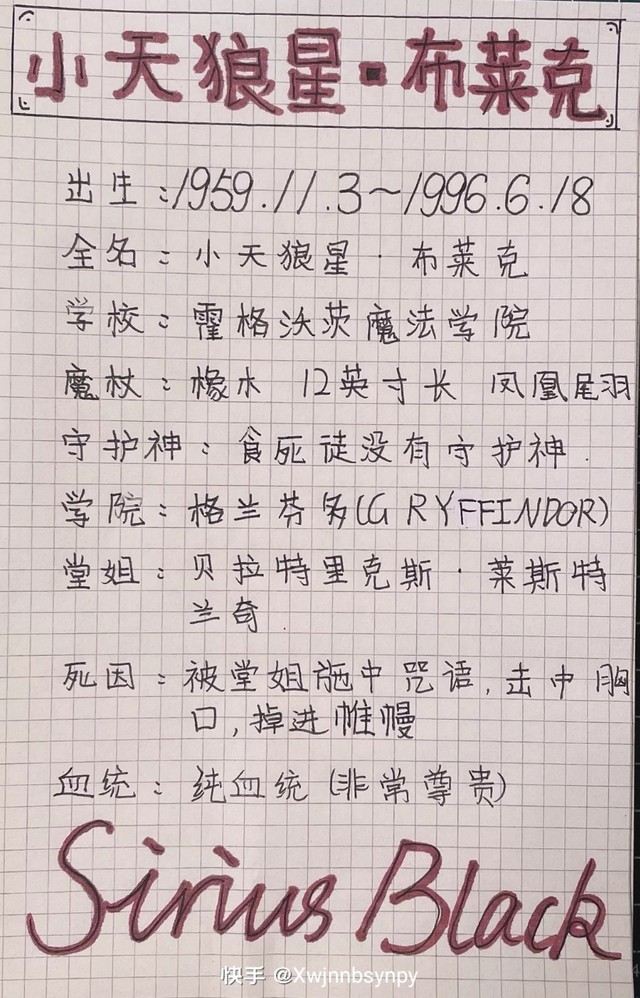 小天狼星·布莱克
出生:1959.11.3~1996.6.18
全名:小天狼星·布莱克
学校:霍格沃茨魔法学院
魔杖:橡木 12英寸长 凤凰尾羽
守护神:食死徒没有守护神.
学院:格兰芬多(GRYFFINDOR)
堂姐:贝拉特里克斯·莱斯特
兰奇
死因:被堂姐施中咒语,击中胸
口,掉进帷幔
血统:纯血统(非常尊贵)
Sirius Black
快手 @Xwjnnbsynpy